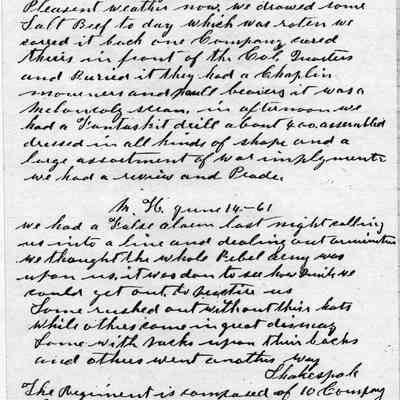 Pleasent weather now. we drawed some
Salt Beef to day which was roten we
carred it back one Company cared
theirs in front of the Col, Quarters
and Burred it they had a Chaplin
mourners and paull bearers it was a
Melancoly scean. in afternoon we
had a Fantaskit drill about 400 assembled
dressed in all kinds of shape and a
large assortment of war implyments
we had a review and Prade.
M. H. June 14-61
we had a False alarm last night calling
us into a line and dealing out
we thought the whole Rebel army was
upon us, it was don to see how Quick we
could get out, to practise us
Some rushed out without their hats
while others come in great dismay
Some with sacks upon their backs
and others went another way
Shakespok
The Regiment is composed of 10 Company